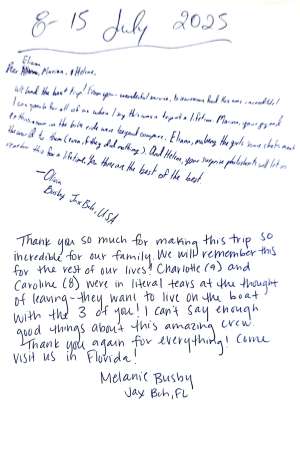 8-15 July 2025
Eliam
Dear Marina, & Helene,
We had the best trip! From your wonderful service, to awesome food this was incredible!
I can speak for all of us when I say this was a trip of a lifetime. Marina, your
were beyond compare. Eliam, making the girls
the world to them (even if they did nothing). And Helene, your surprise will let us
remember this for a lifetime. You three are the best of the best
- Olivia
Busby Jax Bch, USA
Thank you so much for making this trip so
incredible for our family. We will remember this
for the rest of our lives! Charlotte (9) and
Caroline (8) were in literal tears at the thought
of leaving - they want to live on the boat
with the 3 of you! I can't say enough
good things about this amazing crew.
Thank you again for everything! Come
visit us in Florida!
Melanie Busby
Jax Bch, FL